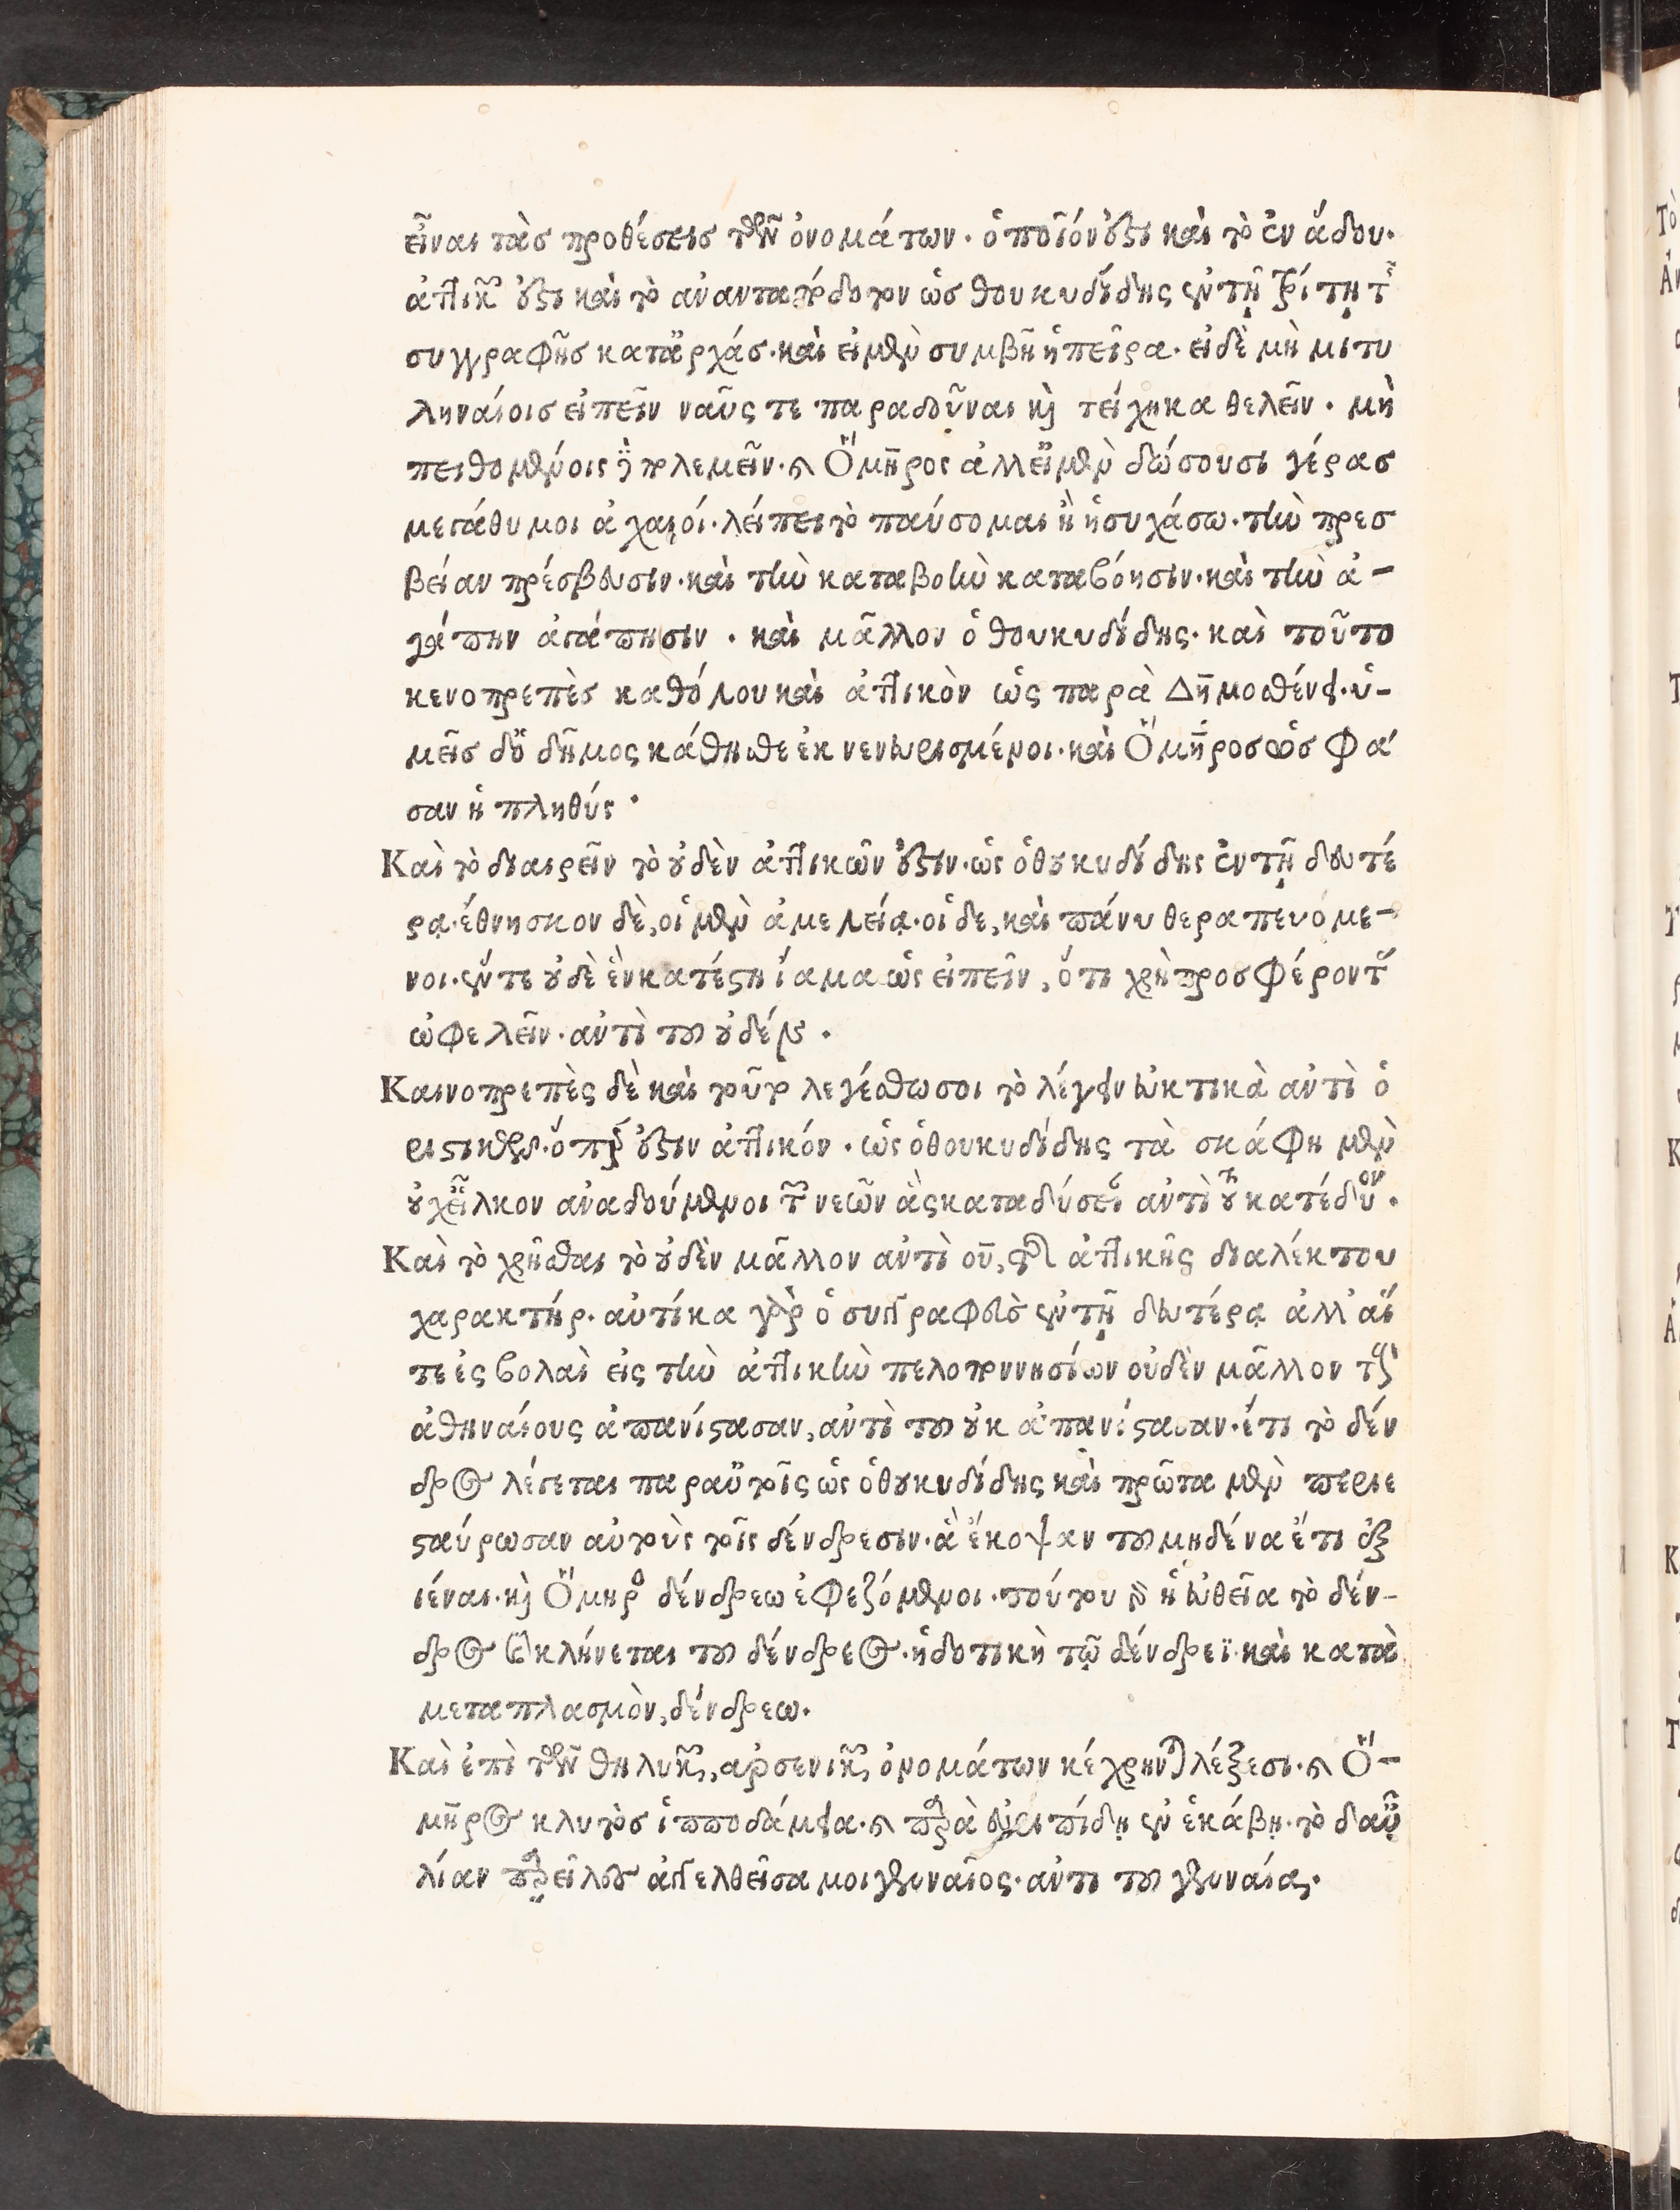 εἶναι τὰσ προθέσεισ τῶν ὀνομάτων. ὁποῖόν ὅξι καὶ τὸ ἐν ἅδου.
ἀττικὸν ὅξι καὶ τὸ ἀνανταπόδοτον ὡσ θουκυδίδης ἐν τῇ τρίτῃ τῆς
συγγραφῆσ κατ' ἀρχάσ. καὶ εἰ μὲν συμβῆ ἡ πεῖρα. εἰ δὲ μὴ μιτυ
ληναίοισ εἰπεῖν ναῦς τε παραδοῦναι καὶ τείχη καθελεῖν. μὴ
πειθομένοις πολεμεῖν. καὶ Ὅμηρος ἀλλ' εἰ μὲν δώσουσι γέρασ
μεγάθυμοι ἀχαιοί. λείπει τὸ παύσομαι ἢ ἡσυχάσω. τὴν πρεσ
βείαν πρέσβευσιν. καὶ τὴν καταβοὴν καταβόησιν. καὶ τὴν ἀ-
γάπην ἀγάπησιν. καὶ μᾶλλον ὁ θουκυδίδης. καὶ τοῦτο
κενοπρεπὲσ καθόλου καὶ ἀττικὸν ὡς παρὰ Δημοσθένει. ὑ-
μεῖσ δ' ὁ δῆμος κάθησθε ἐκνενευρισμένοι. καὶ Ὅμηροσ ὡσ φά
σαν ἡ πληθύς.
Καὶ τὸ διαιρεῖν τὸ οὐδὲν ἀττικῶν ἐστιν. ὡς ὁ θουκυδίδης ἐν τῇ δευτέ
ρᾳ. ἔθνησκον δὲ, οἱ μὲν ἀμελείᾳ. οἱ δε, καὶ πάνυ θεραπευόμε-
νοι. ἕν τε οὐδὲ ἓν κατέστη ἴαμα ὡς εἰπεῖν, ὅτι χρὴ προσφέροντας
ὠφελεῖν. ἀντὶ τοῦ οὐδέν.
Καινοπρεπὲς δὲ καὶ τοῦτο λεγέσθω σοι τὸ λέγειν εὐκτικὰ ἀντὶ ὁ
ριστικῶν. ὅπερ ἐστὶν ἀττικόν. ὡς ὁ θουκυδίδης τὰ σκάφη μὲν
οὐχ εἷλκον ἀναδούμενοι τῶν νεῶν ἃς καταδύσειαν ἀντὶ τοῦ κατέδυον.
Καὶ τὸ χρῆσθαι τὸ οὐδὲν μᾶλλον ἀντὶ οὔ, τῆς ἀττικῆς διαλέκτου
χαρακτήρ. αὐτίκα γὰρ ὁ συγγραφεὺσ ἐν τῇ δευτέρᾳ ἀλλ' αἵ
τε ἐςβολαὶ εἰς τὴν ἀττικὴν πελοποννησίων οὐδὲν μᾶλλον τοὺς
ἀθηναίους ἀπανίστασαν, ἀντὶ τοῦ οὐκ ἀπανίστασαν. ἔτι τὸ δέν
δρος λέγεται παρ' αὐτοῖς ὡς ὁ θουκυδίδης καὶ πρῶτα μὲν περιε
σταύρωσαν αὐτοὺς τοῖς δένδρεσιν. ἃ ἔκοψαν τοῦ μηδένα ἔτι ἐξ
ιέναι. καὶ Ὅμηρος δένδρεω ἐφεζόμενοι. τούτου δὲ ἡ εὐθεῖα τὸ δέν-
δρος ὃ κλίνεται τοῦ δένδρεος. ἡ δοτικὴ τῷ δένδρεϊ. καὶ κατὰ
μεταπλασμὸν, δένδρεω.
Καὶ ἐπὶ τῶν θηλυκῶν, ἀρσενικῶν ὀνομάτων κέχρηνται λέξεσι. καὶ Ὅ-
μηρος κλυτὸσ ἱπποδάμεια. καὶ παρὰ εὐριπίδῃ ἐν ἑκάβῃ. τὸ δαυ
λίαν ἀπελθεῖσα μοι γενναῖος. ἀντὶ τοῦ γενναία.